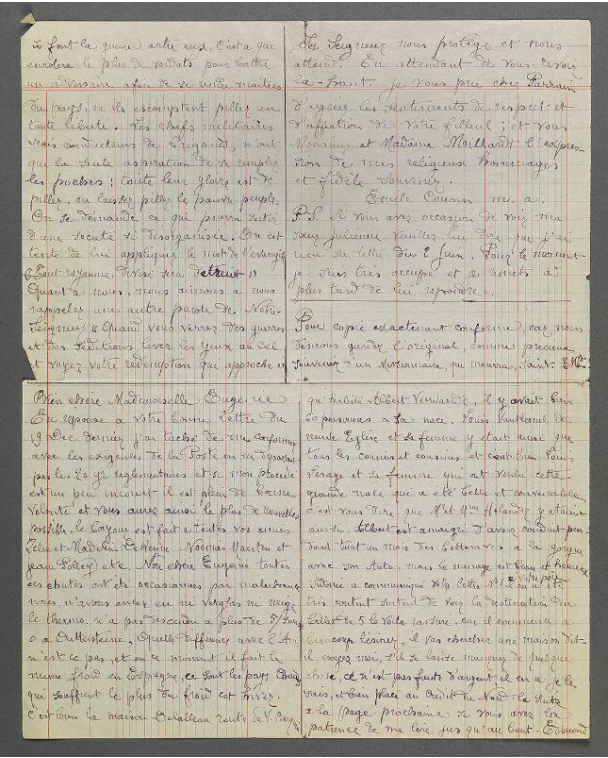 se font la guerre entre eux, c'est à qui
enrôlera le plus de soldats pour battre
un adversaire, afin de se rendre maîtres
du pays, où ils pillez en
toute liberté. Les chefs militaires
vrais conducteurs de brigands, n'ont
que la seule aspiration de se remplir
les poches; toute leur gloire est de
piller, ou laisser piller le pauvre peuple.
On se demande ce qui pourra sortir
d'une société si désorganisée. On est
tenté de lui appliquer le mot de l'évangile
"Tout royaume divisé sera détruit"
Quant à nous, nous aimons à nous
rappeler une autre parole de Notre-
Seigneur "Quand vous verrez des guerres
et des séditions levez les yeux au ciel
et voyez votre rédemption qui approche"
Le Seigneur nous protège et nous
attend. En attendant de vous revoir
là-haut, je vous prie cher Parrain
d'agréer les sentiments de respect et
d'affection de votre filleul; et vous
Monsieur et Madame l'expres-
sion de mes religieux hommages
et fidèle souvenir.
Emile Cousin m. a.
P.S. Si vous avez occasion de voir ma
soeur Julienne veuillez lui dire que j'ai
reçu sa lettre du 2 Juin. Pour le moment
je suis très occupé et je remets à
plus tard de lui répondre.
Pour copie exactement conforme, car nous
désirons garder l'original, comme précieux
souvenir d'un Missionnaire, qui mourra, Saint.
Bien chère Mademoiselle Eugénie
En réponse à votre bonne lettre du
19 Dec. dernier j'ai taché de me conformer
avec les exigences de la Poste en ne dépassant
pas les 20 gr réglementaires et si mon procédé
est un peu incourt il est plein de bonne
volonté et vous aurez ainsi le plus de nouvelles
possible. le Bonjour est fait à toutes vos amies
Zélie et
etc. Ma chère Eugénie toutes
ces chutes ont été occasionnées par malechance
nous n'avons encore eu ni verglas ni neige
le thermo. n'a pas descendu à plus de 5/ sous
0 à Quelle différence avec l'An
n'est ce pas, et en ce moment il fait le
même froid en Espagne, ce sont les pays chauds
qui souffrent le plus du froid cet hiver.
C'est bien la maison route de
qu'habite Albert il y avait bien
60 personnes à sa noce. Louis
neuve Eglise et sa femme y était ainsi que
tous les cousins et cousines et
Lesage et sa femme qui ont voulu cette
grande noce qui a été belle et convenable
c'est vous dire que Mr et Mme y étaient
aussi. Albert est amaigri d'avoir conduit pen-
dant tout un mois des Betteraves à la
avec son Auto, mais le ménage est bon et heureux
a communiqué la lettre
très content surtout de voir la destination du
Billet de 5 le car il commence à
beaucoup lésiner, il va chercher une maison dit-
il, croyez moi, s'il se laisse manquer de quelque
chose, ce n'est pas faute d'argent il en a je le
sais, et bien placé au Crédit du Nord. la suite
à la page prochaine si vous avez la
patience de me lire jusqu'au bout. Edmond